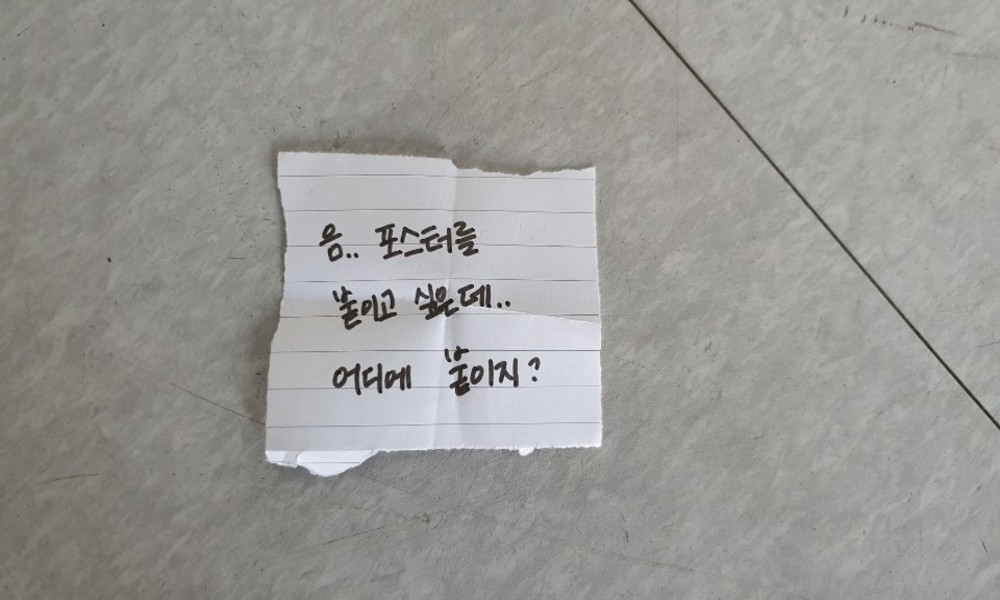 음.. 포스터를
붙이고 싶은데..
어디에 붙이지?